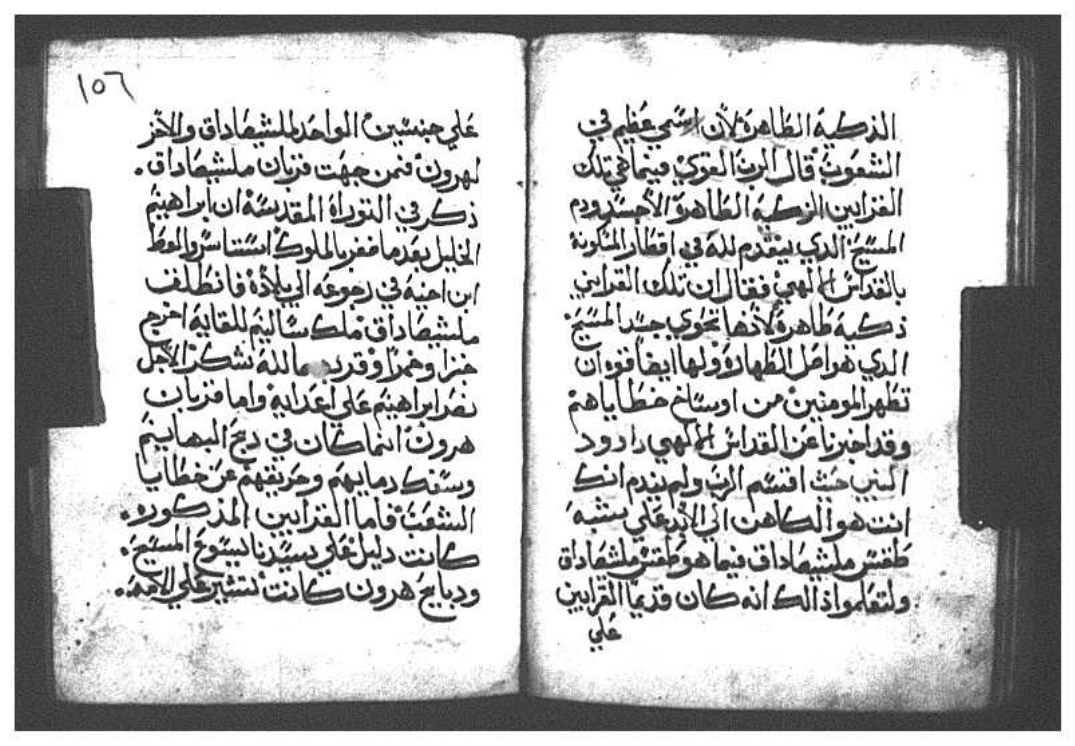 الذكية الطاهرة لأن اسمي عظيم في
الشعوب قال الرب القوي فيما هي تلك
القرابين الزكية الطاهرة الا جسد ودم
المسيح الدي يتقدم لله في اقطار المسكونة
بالقداس الالهي فقال ان تلك القرابين
ذكية طاهرة لأنها تحوي جسد المسيح
الدي هو اصل الطهارة ولها ايضا قوه ان
تطهر المومنين من اوساخ خطاياهم
وقد اخبرنا عن القداس الالهي داوود
النبي حيث اقسم الرب ولم يندم انك
انت هو الكاهن الي الابد علي شبه
طقس ملشيصاداق فيما هو طقس ملشيصاداق
ولتعلموا ذالك انه كان قديما القرابين
علي
١٥٦
علي جنسين الواحد لملشيصاداق والاخر
لهرون فمن جهت قربان ملشيصاداق.
ذكر في التوراة المقدسة ان ابراهيم
الخليل بعدما ضفر بالملوك استاسر والوط
ابن اخيه في رجوعه الي بلاده فانطلق
ملشيصاداق ملك ساليم للقايه اخرج
خبزا وخمرا وقربهما لله شكرا لاجل
نصر ابراهيم علي اعدايه واما قربان
هرون انما كان في دبح البهايم
وسفك دمايهم وحريقهم عن خطايا
الشعب فاما القرابين المذكوره.
كانت دليل علي سيدنا يسوع المسيح.
ودبايح هرون كانت تشير علي الامه.